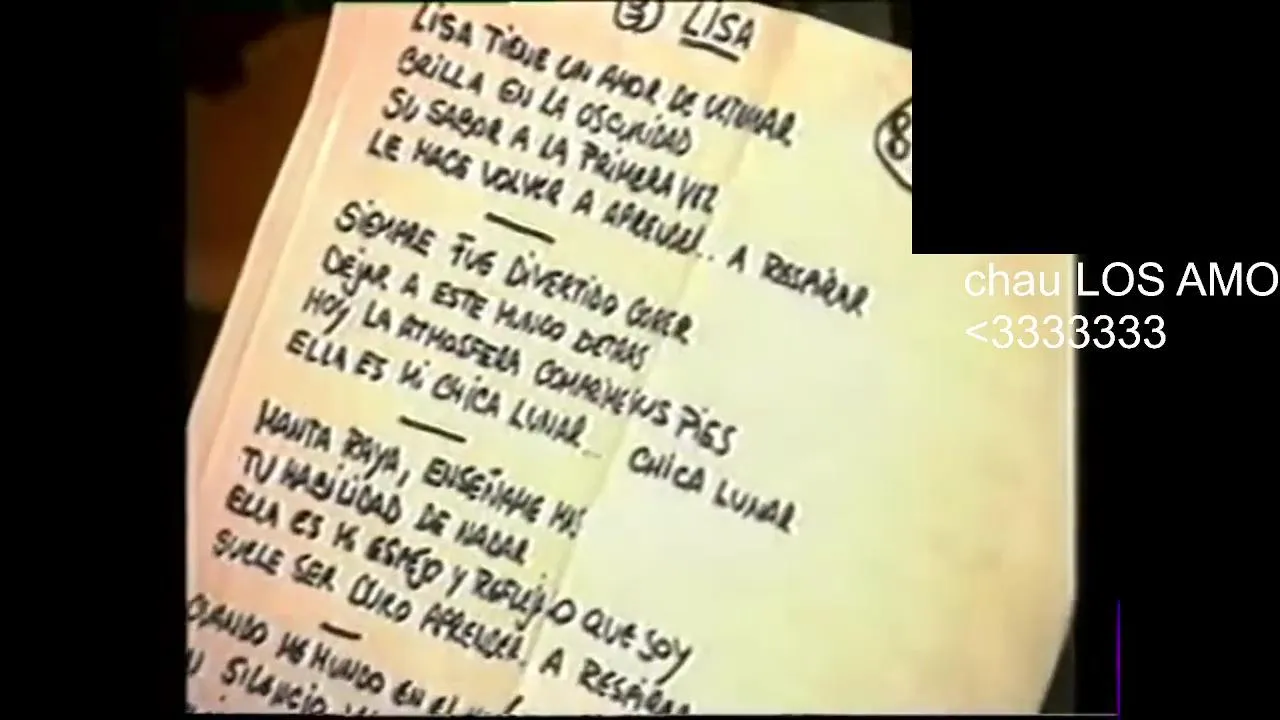 3 LISA
LISA TIENE UN AMOR DE ULTRAMAR
BRILLA EN LA OSCURIDAD
SU SABOR A LA PRIMERA VEZ
LE HACE VOLVER A APRENDER.. A RESPIRAR
8
SIEMPRE FUE DIVERTIDO CORRER
DEJAR A ESTE MUNDO DETRAS
HOY LA ATMOSFERA COMPRIME SUS PIES
ELLA ES MI CHICA LUNAR... CHICA LUNAR
MANTA RAYA, ENSEÑAME MAS
TU HABILIDAD DE NADAR
ELLA ES MI ESPEJO Y REFLEJO QUE SOY
SUELE SER DURO APRENDER, A RESPIRAR
CUANDO ME HUNDO EN EL
SILENCIO
chau LOS AMO
<3333333